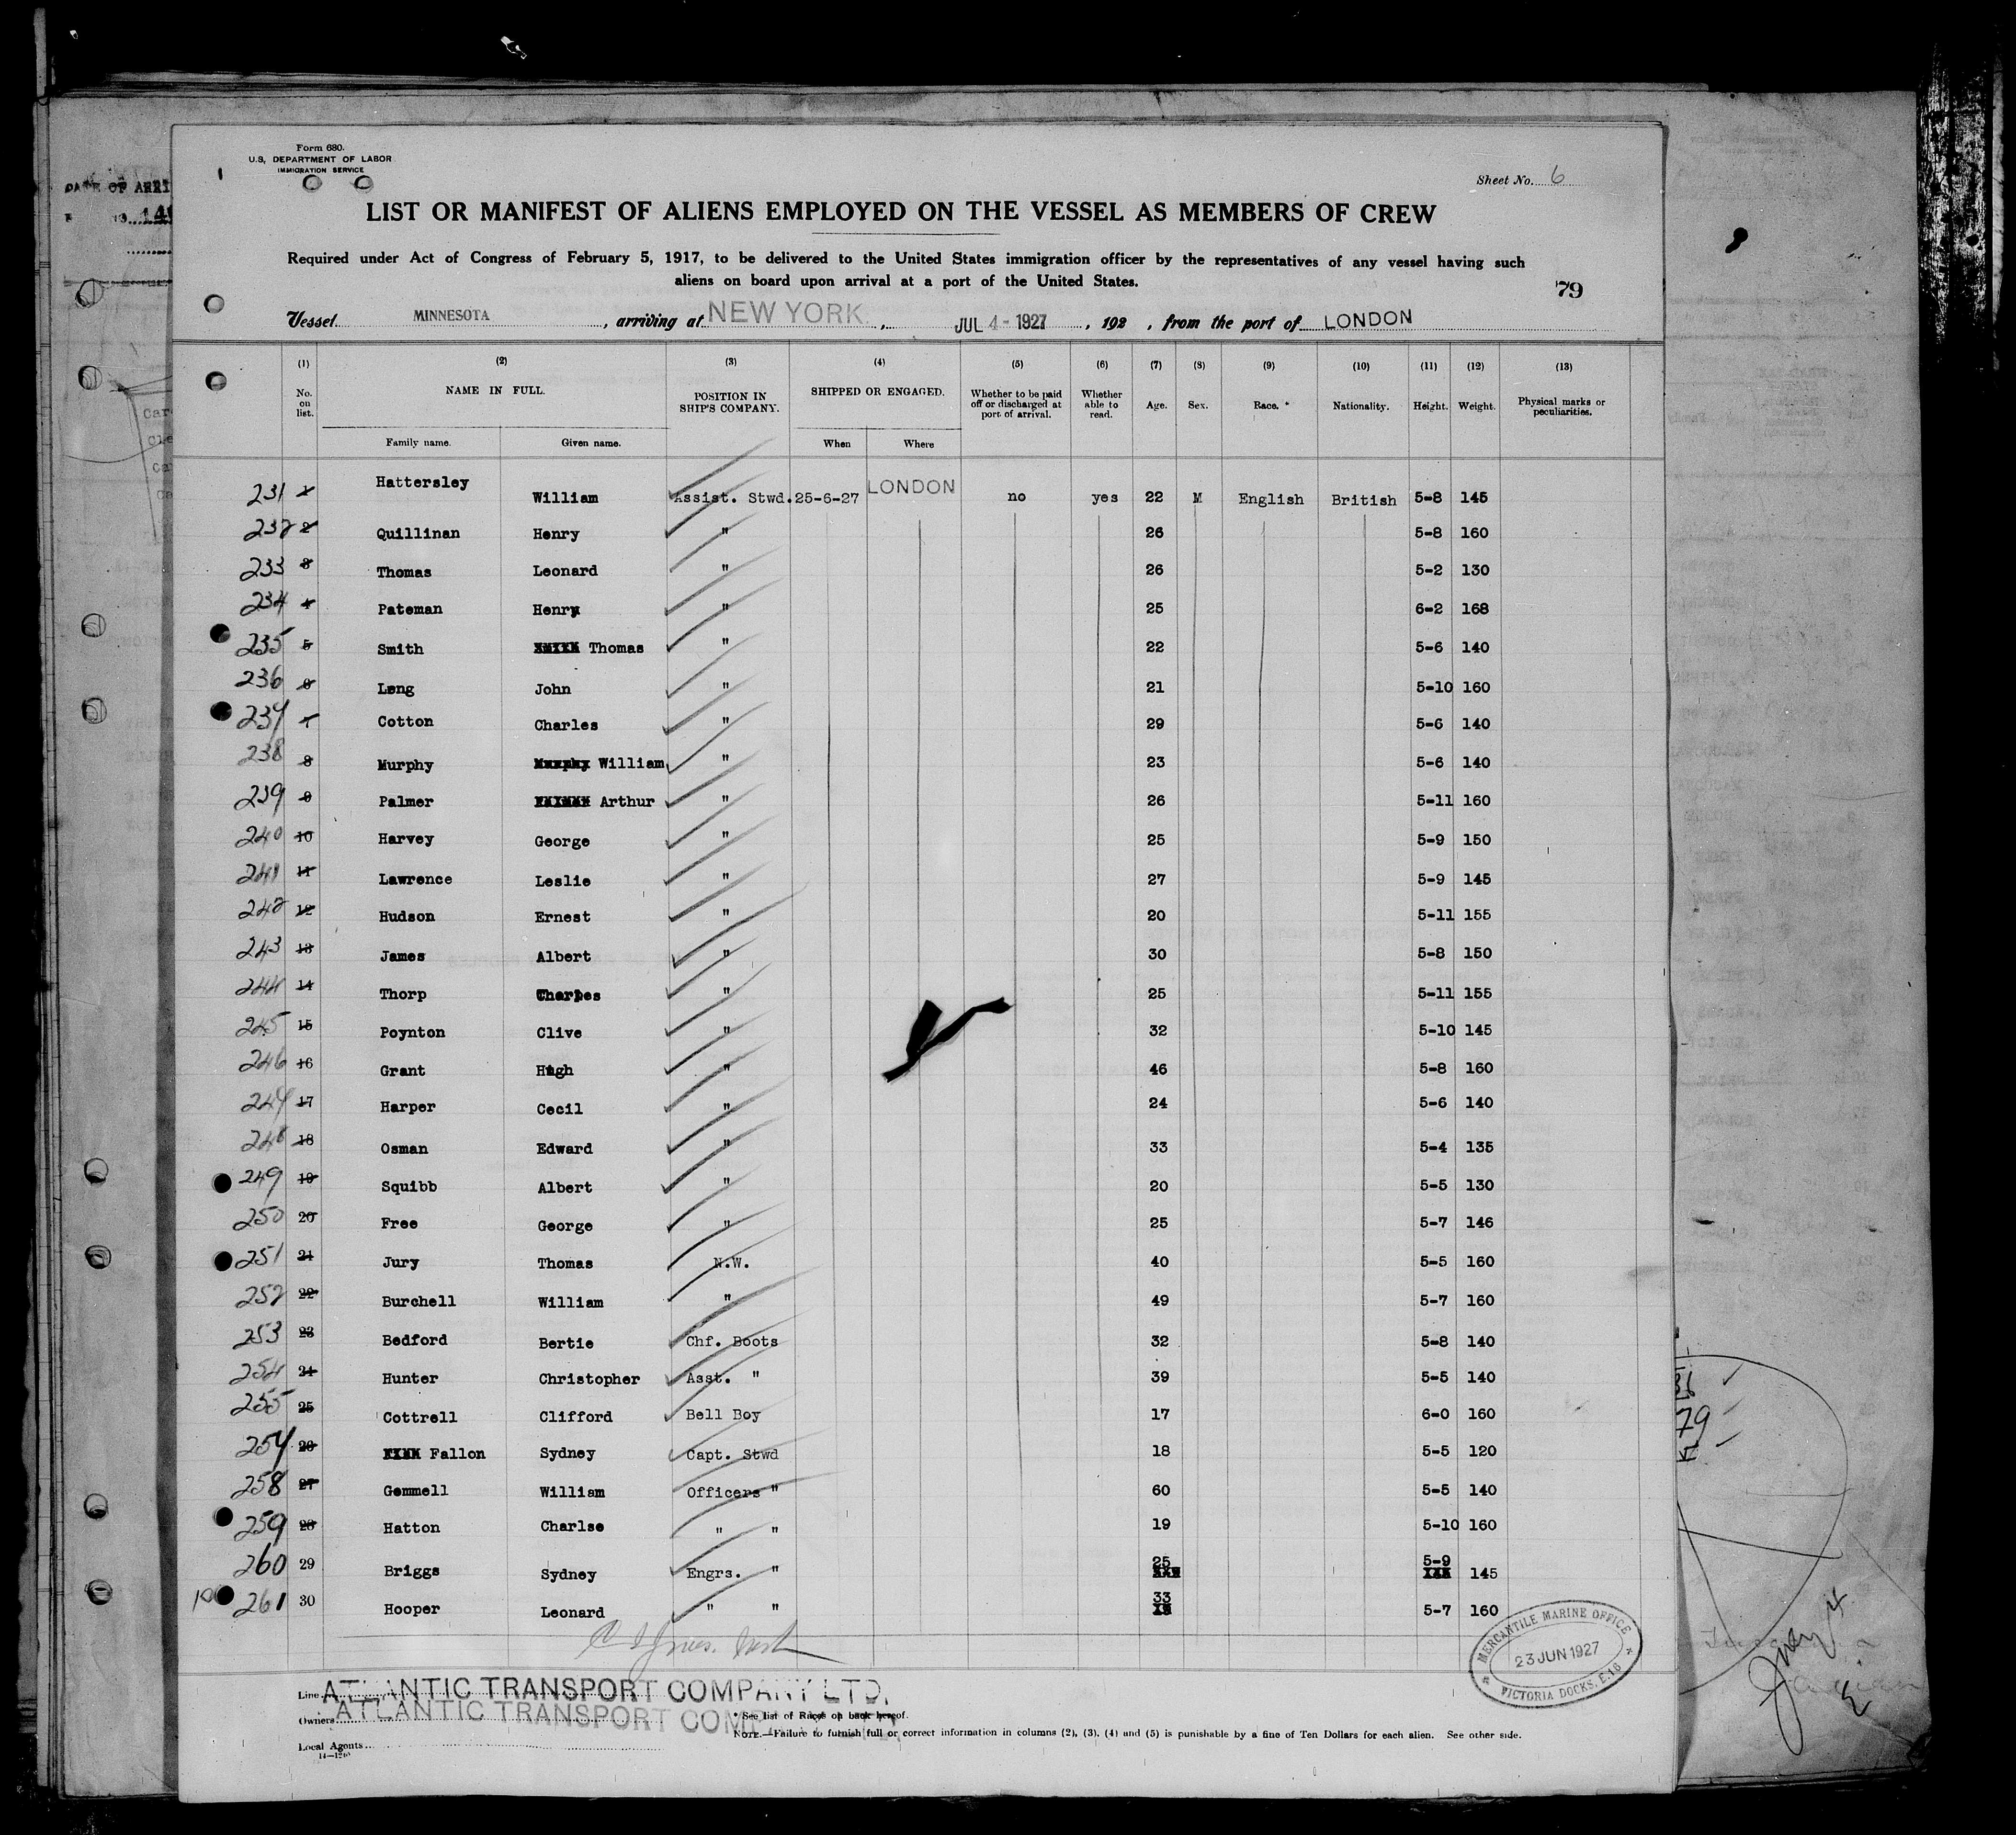 Form 680.
U.S. DEPARTMENT OF LABOR
IMMIGRATION SERVICE
Sheet No. 6
LIST OR MANIFEST OF ALIENS EMPLOYED ON THE VESSEL AS MEMBERS OF CREW
Required under Act of Congress of February 5, 1917, to be delivered to the United States immigration officer by the representatives of any vessel having such
aliens on board upon arrival at a port of the United States.
79
Vessel MINNESOTA, arriving at NEW YORK, JUL 4-1927, 192 , from the port of LONDON
(1) (2) (3) (4) (5) (6) (7) (8) (9) (10) (11) (12) (13)
No. on list. NAME IN FULL. POSITION IN SHIP'S COMPANY. SHIPPED OR ENGAGED. Whether to be paid off or discharged at port of arrival. Whether able to read. Age. Sex. Race.* Nationality. Height. Weight. Physical marks or peculiarities.
Family name. Given name. When Where
231 1 Hattersley William Assist. Stwd. 25-6-27 LONDON no yes 22 M English British 5-8 145
232 2 Quillinan Henry " 26 5-8 160
233 3 Thomas Leonard " 26 5-2 130
234 4 Pateman Henry " 25 6-2 168
235 5 Smith Thomas " 22 5-6 140
236 6 Long John " 21 5-10 160
237 7 Cotton Charles " 29 5-6 140
238 8 Murphy William " 23 5-6 140
239 9 Palmer Arthur " 26 5-11 160
240 10 Harvey George " 25 5-9 150
241 11 Lawrence Leslie " 27 5-9 145
242 12 Hudson Ernest " 20 5-11 155
243 13 James Albert " 30 5-8 150
244 14 Thorp Charles " 25 5-11 155
245 15 Poynton Clive " 32 5-10 145
246 16 Grant Hugh " 46 5-8 160
247 17 Harper Cecil " 24 5-6 140
248 18 Osman Edward " 33 5-4 135
249 19 Squibb Albert " 20 5-5 130
250 20 Free George " 25 5-7 146
251 21 Jury Thomas N.W. 40 5-5 160
252 22 Burchell William " 49 5-7 160
253 23 Bedford Bertie Chf. Boots 32 5-8 140
254 24 Hunter Christopher Asst. " 39 5-5 140
255 25 Cottrell Clifford Bell Boy 17 6-0 160
257 26 Fallon Sydney Capt. Stwd 18 5-5 120
258 27 Gemmell William Officers " 60 5-5 140
259 28 Hatton Charlse " " 19 5-10 160
260 29 Briggs Sydney Engrs. " 25 5-9 145
261 30 Hooper Leonard " " 33 5-7 160
MERCANTILE MARINE OFFICE
23 JUN 1927
VICTORIA DOCKS, E.16
Line ATLANTIC TRANSPORT COMPANY LTD.
Owners ATLANTIC TRANSPORT
* See list of Races on back hereof.
NOTE.—Failure to furnish full or correct information in columns (2), (3), (4) and (5) is punishable by a fine of Ten Dollars for each alien. See other side.
Local Agents
14—1240